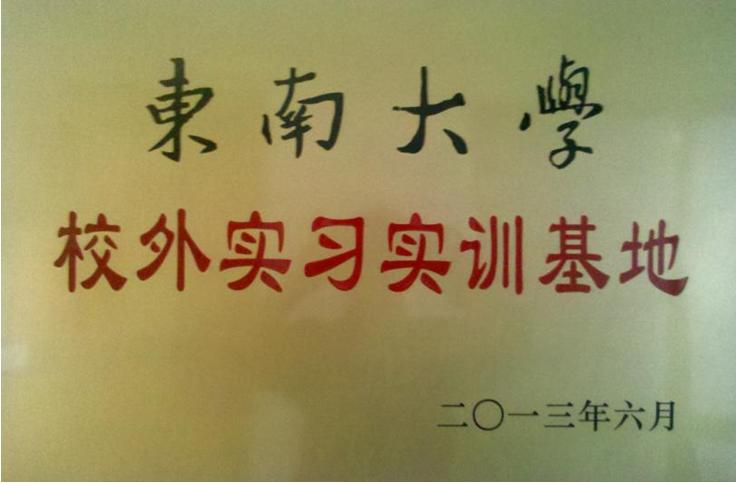 東南大學
校外实习实训基地
二〇一三年六月